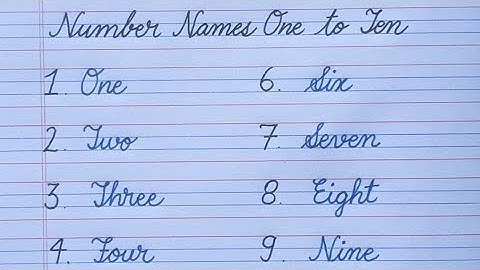 Number Names One to Ten
1. One
2. Two
3. Three
4. Four
6. Six
7. Seven
8. Eight
9. Nine